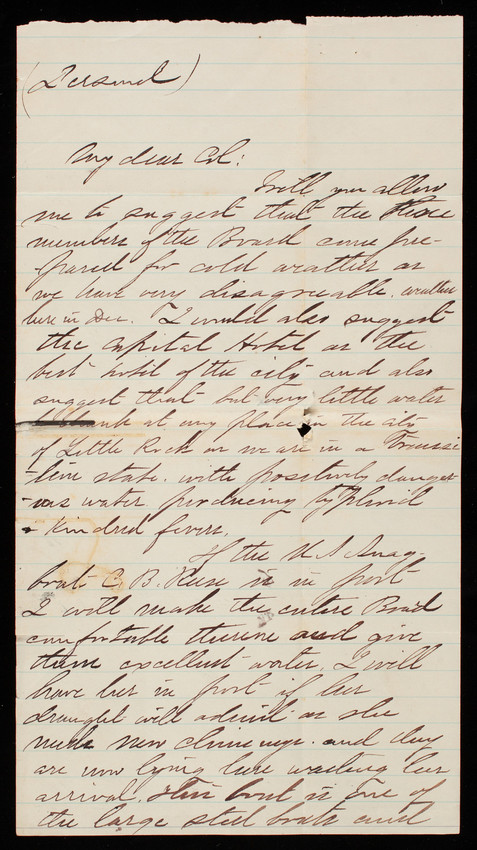 (Personal)
My dear Col:
Will you allow
me to suggest that the three
members of the Board come pre-
-pared for cold weather as
we have very disagreeable weather
here in Dec. I would also suggest
the Capital Hotel as the
best hotel of the city and also
suggest that but very little water
drank at any place in the city
of Little Rock as we are in a Transi
-tion state. with positively danger
-ous water. producing typhoid
& Kindred fevers.
If the U S Snag-
boat C. B. Reese is in port
I will make the entire Board
comfortable thereon and give
them excellent water. I will
have her in port if her
draught will admit as she
needs new chimneys. and they
are now lying here waiting her
arrival. This boat is one of
the large steel boats and